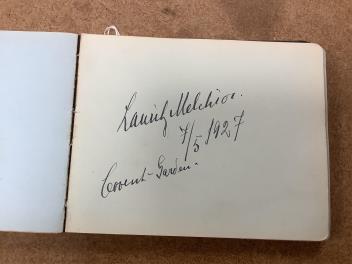 Lauritz Melchior.
7/5 1927
Covent-Garden.